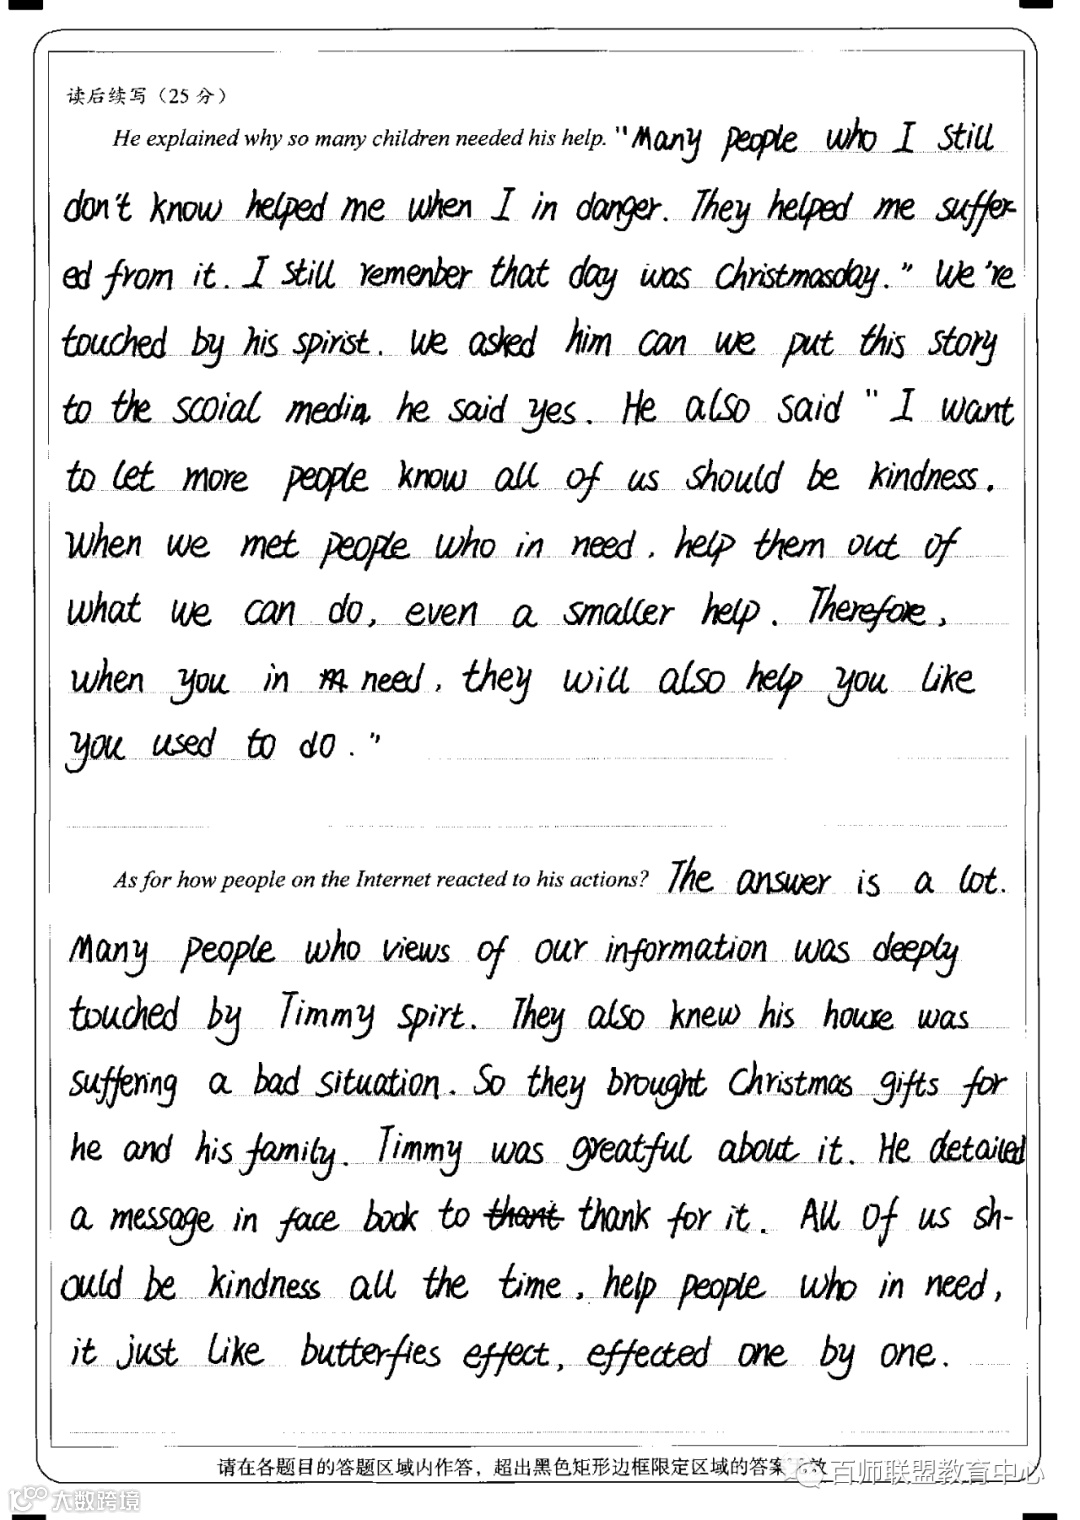 读后续写（25 分）
He explained why so many children needed his help. "Many people who I still
don't know helped me when I in danger. They helped me suffer-
ed from it. I still remenber that day was Christmasday." We're
touched by his spirist. we asked him can we put this story
to the scoial media, he said yes. He also said " I want
to let more people know all of us should be kindness.
When we met people who in need, help them out of
what we can do, even a smaller help. Therefore,
when you in need, they will also help you like
you used to do."
As for how people on the Internet reacted to his actions? The answer is a lot.
Many people who views of our information was deeply
touched by Timmy spirt. They also knew his house was
suffering a bad situation. So they brought Christmas gifts for
he and his family. Timmy was greatful about it. He detailed
a message in face book to thank for it. All of us sh-
ould be kindness all the time, help people who in need,
it just like butterfies effect, effected one by one.
请在各题目的答题区域内作答，超出黑色矩形边框限定区域的答案无效
百师联盟教育中心
大数跨境